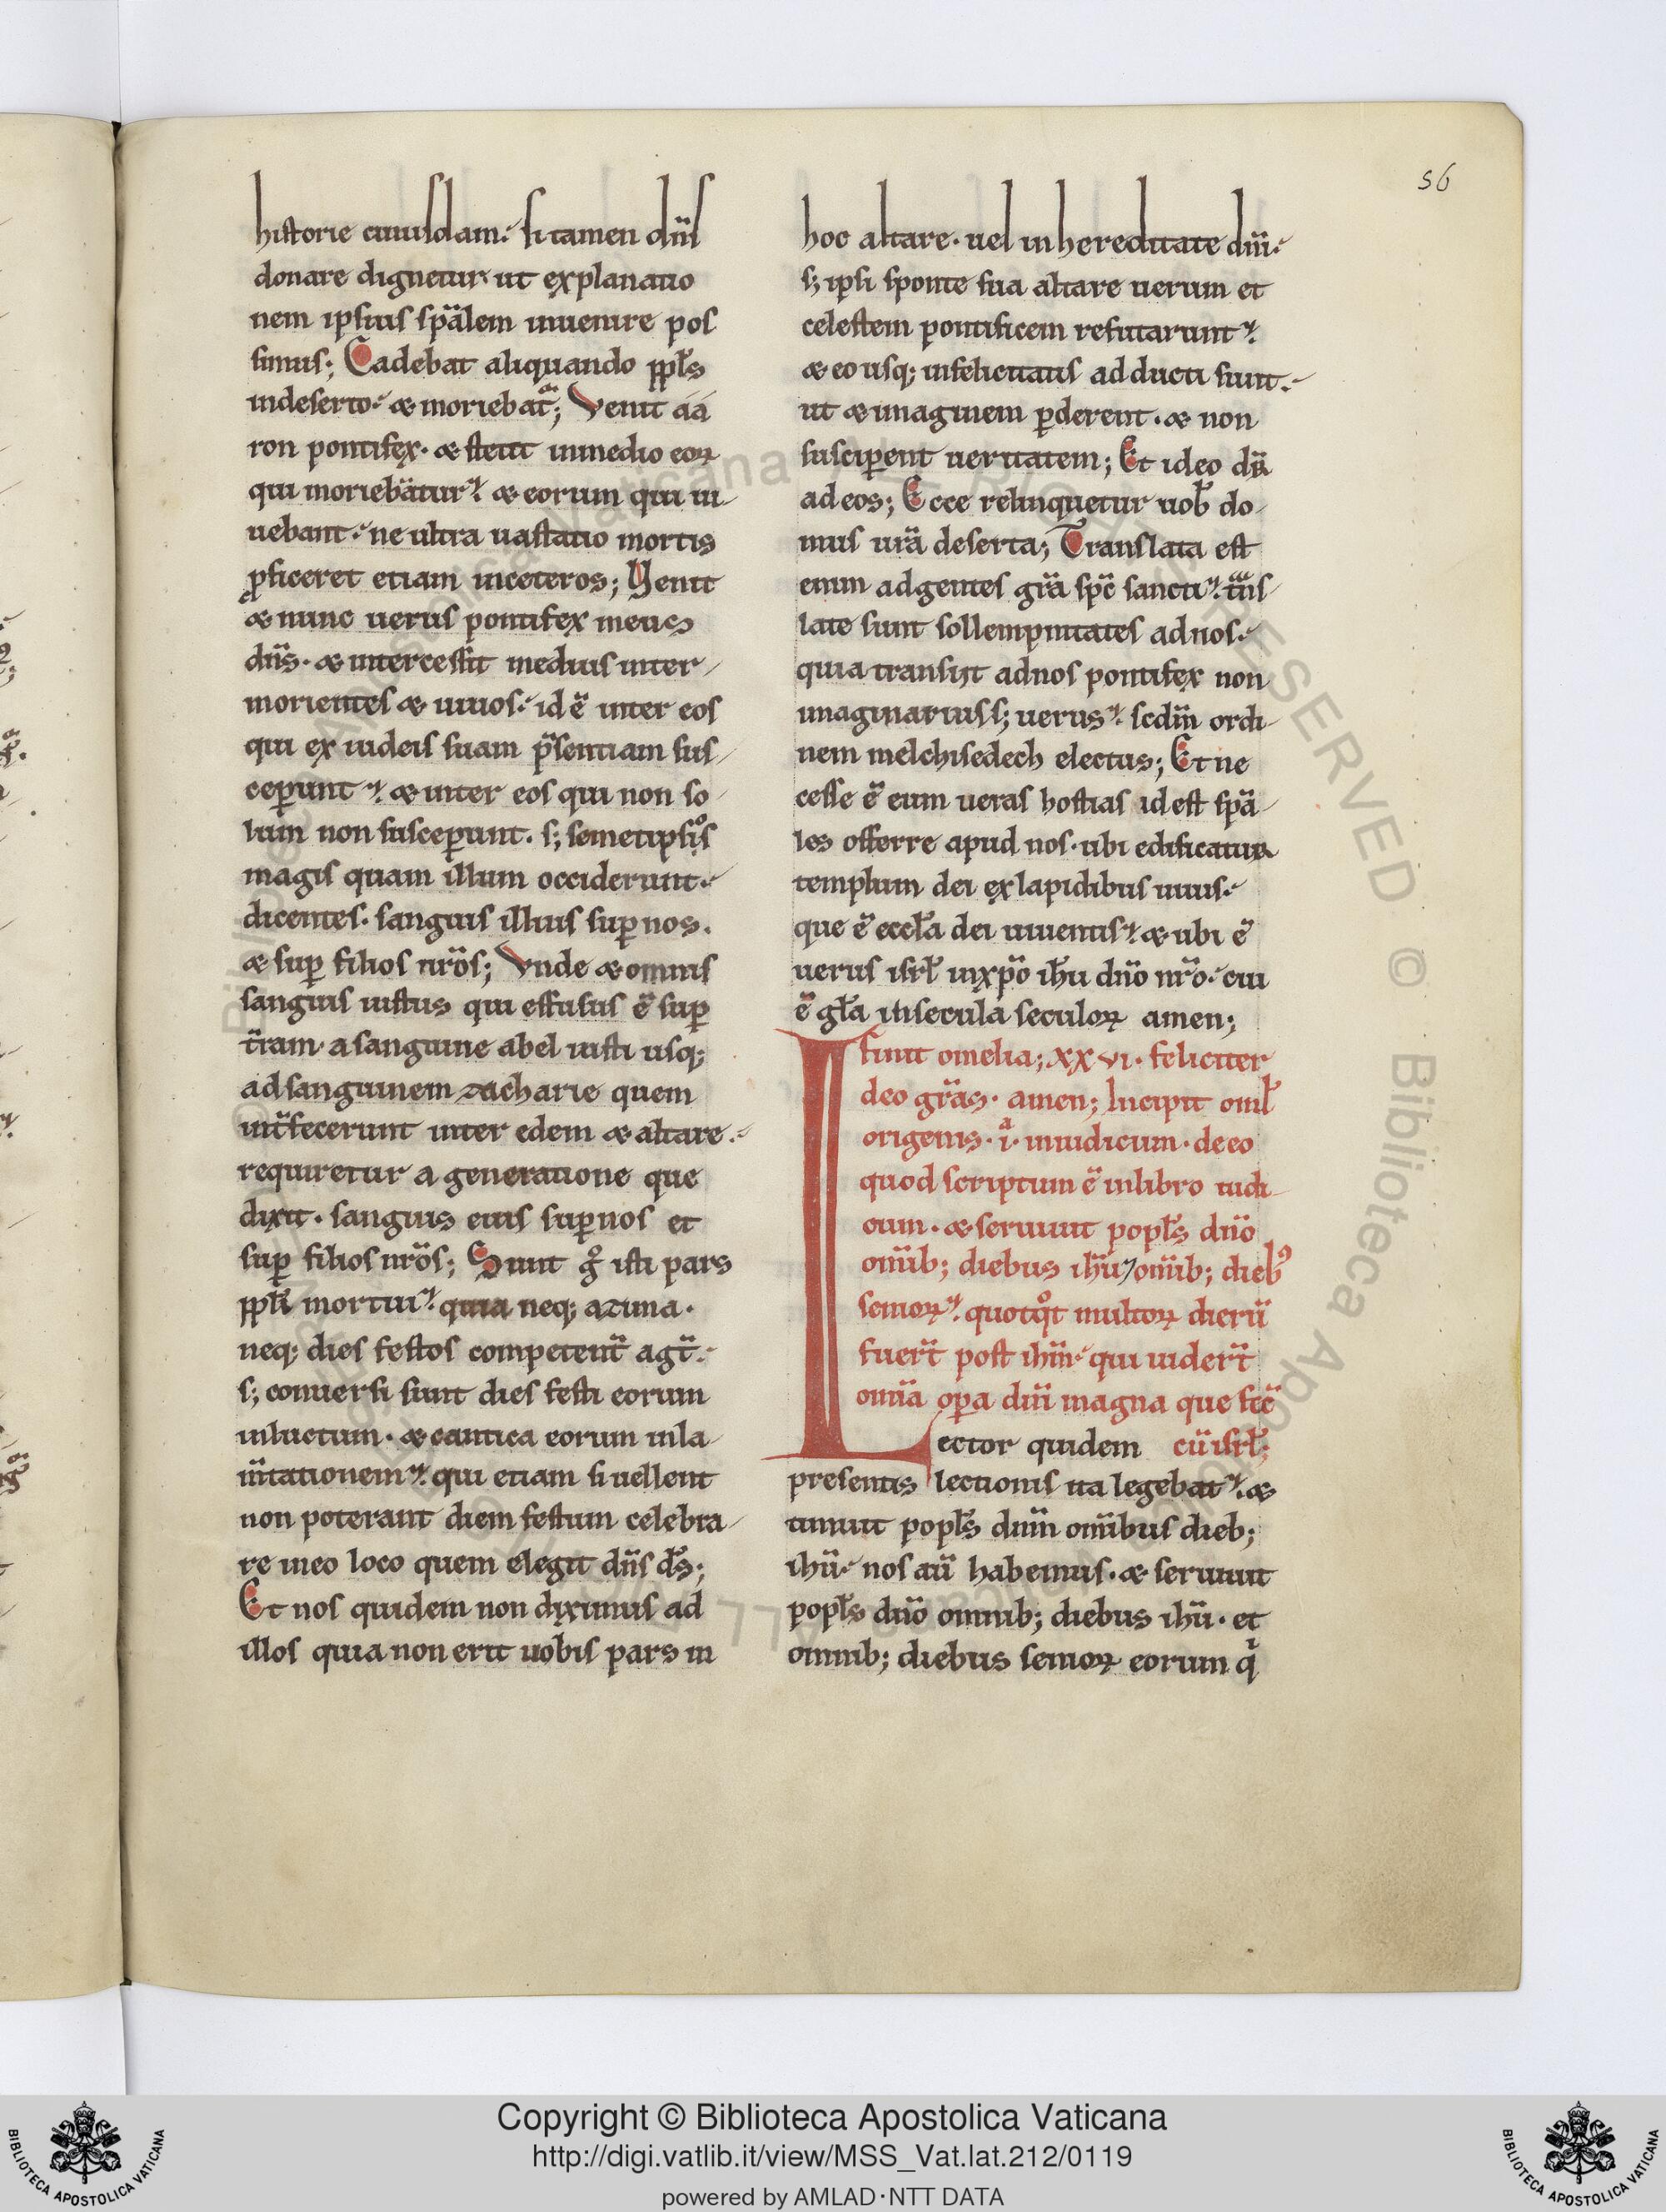 56
historie cuiusdam. si tamen dn̄s
donare dignetur ut explanatio
nem ipsius sp̄alem inuenire pos
simus; Cadebat aliquando ppl̄s
indeserto. & moriebat̄; Venit aa
ron pontifex. & stetit inmedio eoꝝ
qui moriebātur. & eorum qui ui
uebant. ne ultra uastatio mortis
ꝓficeret etiam inceteros; Venit
& nunc uerus pontifex meus
dn̄s. & intercessit medius inter
morientes & uiuos. id ē inter eos
qui ex iudeis suam p̄sentiam sus
ceꝑunt. & inter eos qui non so
lum non susceꝑunt. s; semetipsos
magis quam illum occiderunt.
dicentes. sanguis illius suꝑ nos.
& suꝑ filios nr̄os; Vnde & omnis
sanguis iustus qui effusus ē suꝑ
t̄ram a sanguine abel iusti usq;
ad sanguinem zacharie quem
int̄fecerunt inter edem & altare.
requiretur a generatione que
dixit. sanguis eius suꝑ nos et
suꝑ filios nr̄os; Sunt g̊ isti pars
ppl̄i mortui. quia neq; azima.
neq; dies festos competent̄ agt̄.
s; conuersi sunt dies festi eorum
inluctum. & cantica eorum inla
m̄tationem. qui etiam si uellent
non poterant diem festum celebra
re ineo loco quem elegit dn̄s ds̄;
Et nos quidem non diximus ad
illos quia non erit uobis pars in
hoc altare. uel inhereditate dn̄i.
s; ipsi sponte sua altare uerum et
celestem pontificem refutarunt.
& eo usq; infelicitatis adducti sunt.
ut & imaginem ꝑderent. & non
susciꝑent ueritatem; Et ideo dr̄
ad eos; Ecce relinquetur uob̄ do
mus ur̄a deserta; Translata est
enim adgentes gr̄a sp̄c sancti. tn̄s
late sunt sollempnitates adnos.
quia transiit adnos pontifex non
imaginarius s; uerus. scdm̄ ordi
nem melchisedech electus; Et ne
cesse ē eum ueras hostias id est sp̄a
les offerre apud nos. ubi edificatur
templum dei ex lapidibus uiuis.
que ē eccl̄a dei uiuentis. & ubi ē
uerus isrl̄ inxp̄o ih̄u dn̄o nr̄o. cui
ē gl̄a insecula seculoꝝ amen;
Finit omelia; xxvi. feliciter
deo gr̄as. amen; Incipit omł
origenis. i.ᵃ iniudicum. de eo
quod scriptum ē inlibro iudi
cum. & seruiuit popl̄s dn̄o
om̄ib; diebus ih̄u ⁊ om̄ib; dieb⁹
senioꝝ. quotqͦt multoꝝ dierū
fuer̄t post ihm̄. qui uider̄t
om̄ia oꝑa dn̄i magna que fec̄
cū isrl̄;
Lector quidem
presentis lectionis ita legebat. &
timuit popl̄s dnm̄ om̄ibus dieb;
ih̄u. nos aū habemus. & seruiuit
popl̄s dn̄o omnib; diebus ih̄u. et
omnib; diebus senioꝝ eorum qͥ
Copyright © Biblioteca Apostolica Vaticana
http://digi.vatlib.it/view/MSS_Vat.lat.212/0119
powered by AMLAD·NTT DATA
BIBLIOTECA APOSTOLICA VATICANA
BIBLIOTECA APOSTOLICA VATICANA